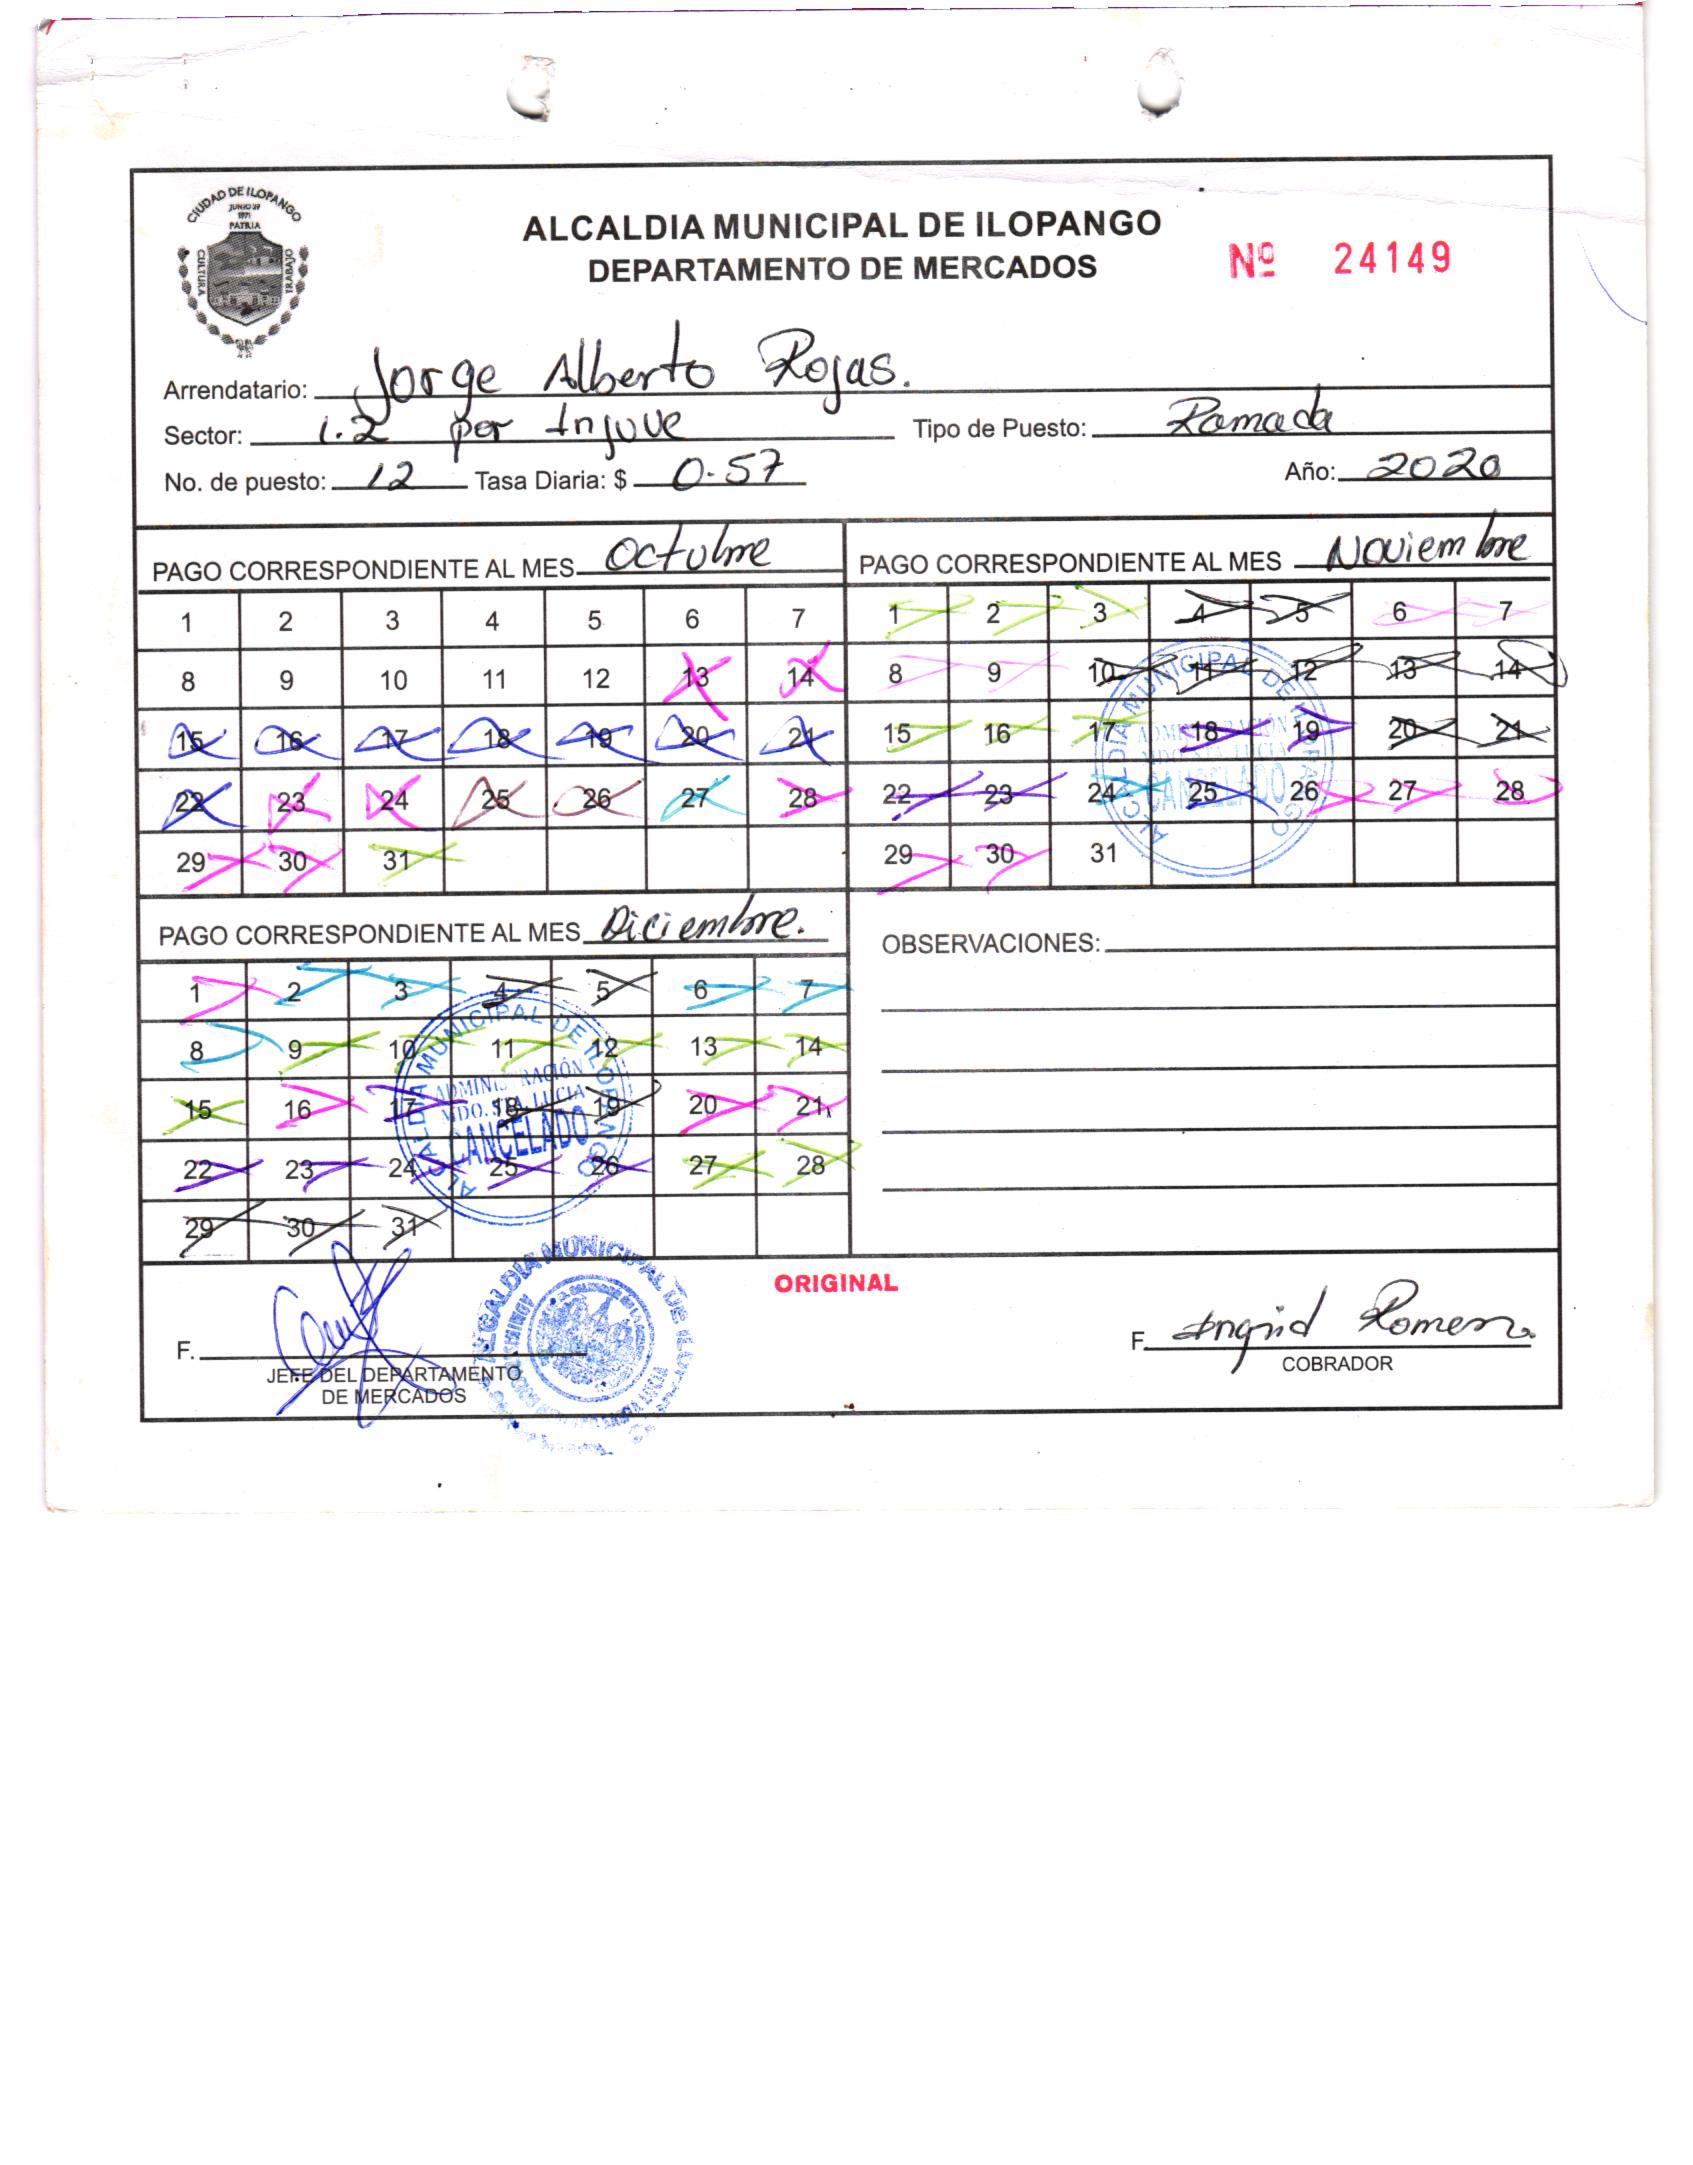 CIUDAD DE ILOPANGO
JUNIO 29
1971
PATRIA
CULTURA
TRABAJO
ALCALDIA MUNICIPAL DE ILOPANGO
DEPARTAMENTO DE MERCADOS
Nº 24149
Arrendatario: Jorge Alberto Rojas.
Sector: 1.2 por Injuve Tipo de Puesto: Ramada
No. de puesto: 12 Tasa Diaria: $ 0.57 Año: 2020
PAGO CORRESPONDIENTE AL MES Octubre
1 2 3 4 5 6 7
8 9 10 11 12 13 14
15 16 17 18 19 20 21
22 23 24 25 26 27 28
29 30 31
PAGO CORRESPONDIENTE AL MES Noviembre
1 2 3 4 5 6 7
8 9 10 11 12 13 14
15 16 17 18 19 20 21
22 23 24 25 26 27 28
29 30 31
ALCALDIA MUNICIPAL DE ILOPANGO
ADMINISTRACIÓN
MDO. STA. LUCIA
CANCELADO
PAGO CORRESPONDIENTE AL MES Diciembre.
1 2 3 4 5 6 7
8 9 10 11 12 13 14
15 16 17 18 19 20 21
22 23 24 25 26 27 28
29 30 31
ALCALDIA MUNICIPAL DE ILOPANGO
ADMINISTRACIÓN
MDO. STA. LUCIA
CANCELADO
OBSERVACIONES:
ORIGINAL
F.
JEFE DEL DEPARTAMENTO
DE MERCADOS
ALCALDIA MUNICIPAL DE
F. Ingrid Romero
COBRADOR